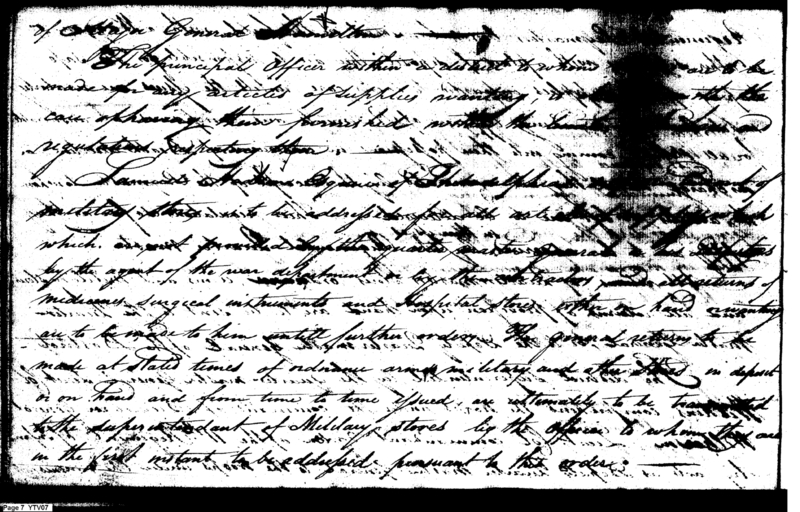 of Major General Hamilton
The principal officer within a district to whom are to be
made for any articles of supplies wanting, is the
case of having them furnished within the and
regulations respecting them
Samuel Hodgdon Esquire of Philadelphia of
military stores is to be addressed for all articles of supply
which is not provided by the quarter master general or his
by the agent of the war department or by the contractors, and all returns of
medicines surgical instruments and Hospital stores either on hand or wanting
are to be made to him untill further orders. The general returns to be
made at stated times of ordnance arms military and other stores in deposit
or on hand and from time to time issued, are ultimately to be transmitted
to the superintendant of Military stores by the officer to whom they are
in the first instant to be addressed pursuant to this order
Page 7 YTV07